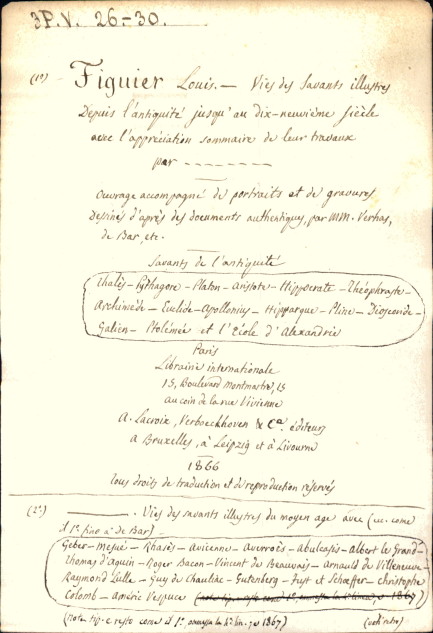 3P.V. 26-30.
(1°) Figuier Louis. — Vies des Savants illustres
Depuis l'antiquité jusqu'au dix-neuvième siècle
avec l'appréciation sommaire de leur travaux
par - - - - - - -
Ouvrage accompagné de portraits et de gravures
dessinés d'après des documents authentiques, par MM. Verhas,
de Bar, etc.
Savants de l'antiquité
Thalès - Pythagore - Platon - Aristote - Hippocrate - Théophraste -
Archimède - Euclide - Apollonius - Hipparque - Pline - Dioscoride -
Galien - Ptolémée et l'Ecole d'Alexandrie
Paris
Librairie internationale
15, Boulevard Montmartre, 15
au coin de la rue Vivienne
A. Lacroix, Verboeckhoven & Ce. éditeurs
à Bruxelles, à Leipzig et à Livourne
1866
Tous droits de traduction et de reproduction réservés
(2°) ———. Vies des savants illustres du moyen age avec (ec. come
il 1° fino a de Bar)
Geber - Mesué - Rhasès - Avicenne - Averroès - Abulcasis - Albert le Grand -
Thomas d'Aquin - Roger Bacon - Vincent de Beauvais - Arnauld de Villeneuve -
Raymond Lulle - Guy de Chauliac - Gutenberg - Fust et Schoeffer - Christophe
Colomb - Améric Vespuce
(note tip. e resto come il 1°, 1867)